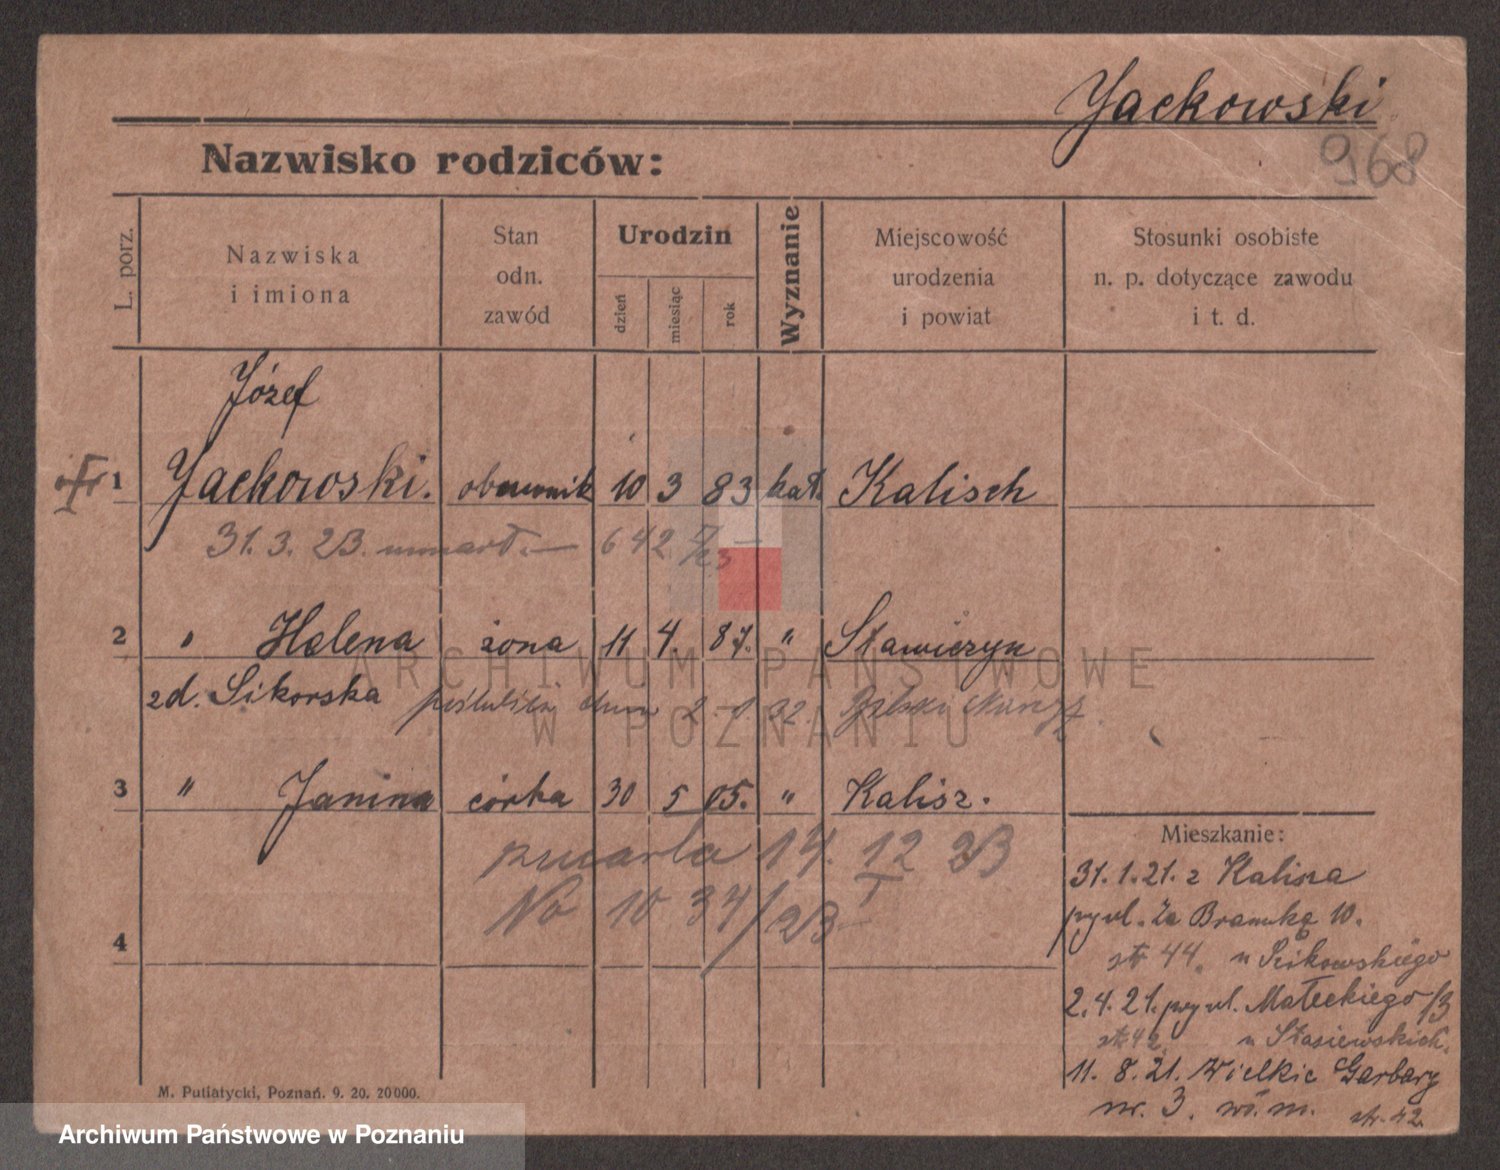 Yackowski
968
Nazwisko rodziców:
L. porz.
Nazwiska
i imiona
Stan
odn.
zawód
Urodzin
dzień
miesiąc
rok
Wyznanie
Miejscowość
urodzenia
i powiat
Stosunki osobiste
n. p. dotyczące zawodu
i t. d.
Józef
1 Yackowski. 10 3 83 kat. Kalisch
31. 3. 23. umarł. — 642
2 " Helena żona 11 4. 87. " Stawiczyn
zd. Sikorska
3 " Janina córka 30 5 05. " Kalisz.
14. 12 23
No 1034/23
4
Mieszkanie:
31. 1. 21. z Kalisza
przy ul. Za Bramką 10.
str 44.
2. 4. 21. przy ul. Małeckiego 13
str 42. u Stasiewskich.
11. 8. 21. Wielkie Garbary
nr. 3. str. 42.
M. Putiatycki, Poznań. 9. 20. 20000.
ARCHIWUM PAŃSTWOWE
W POZNANIU
Archiwum Państwowe w Poznaniu